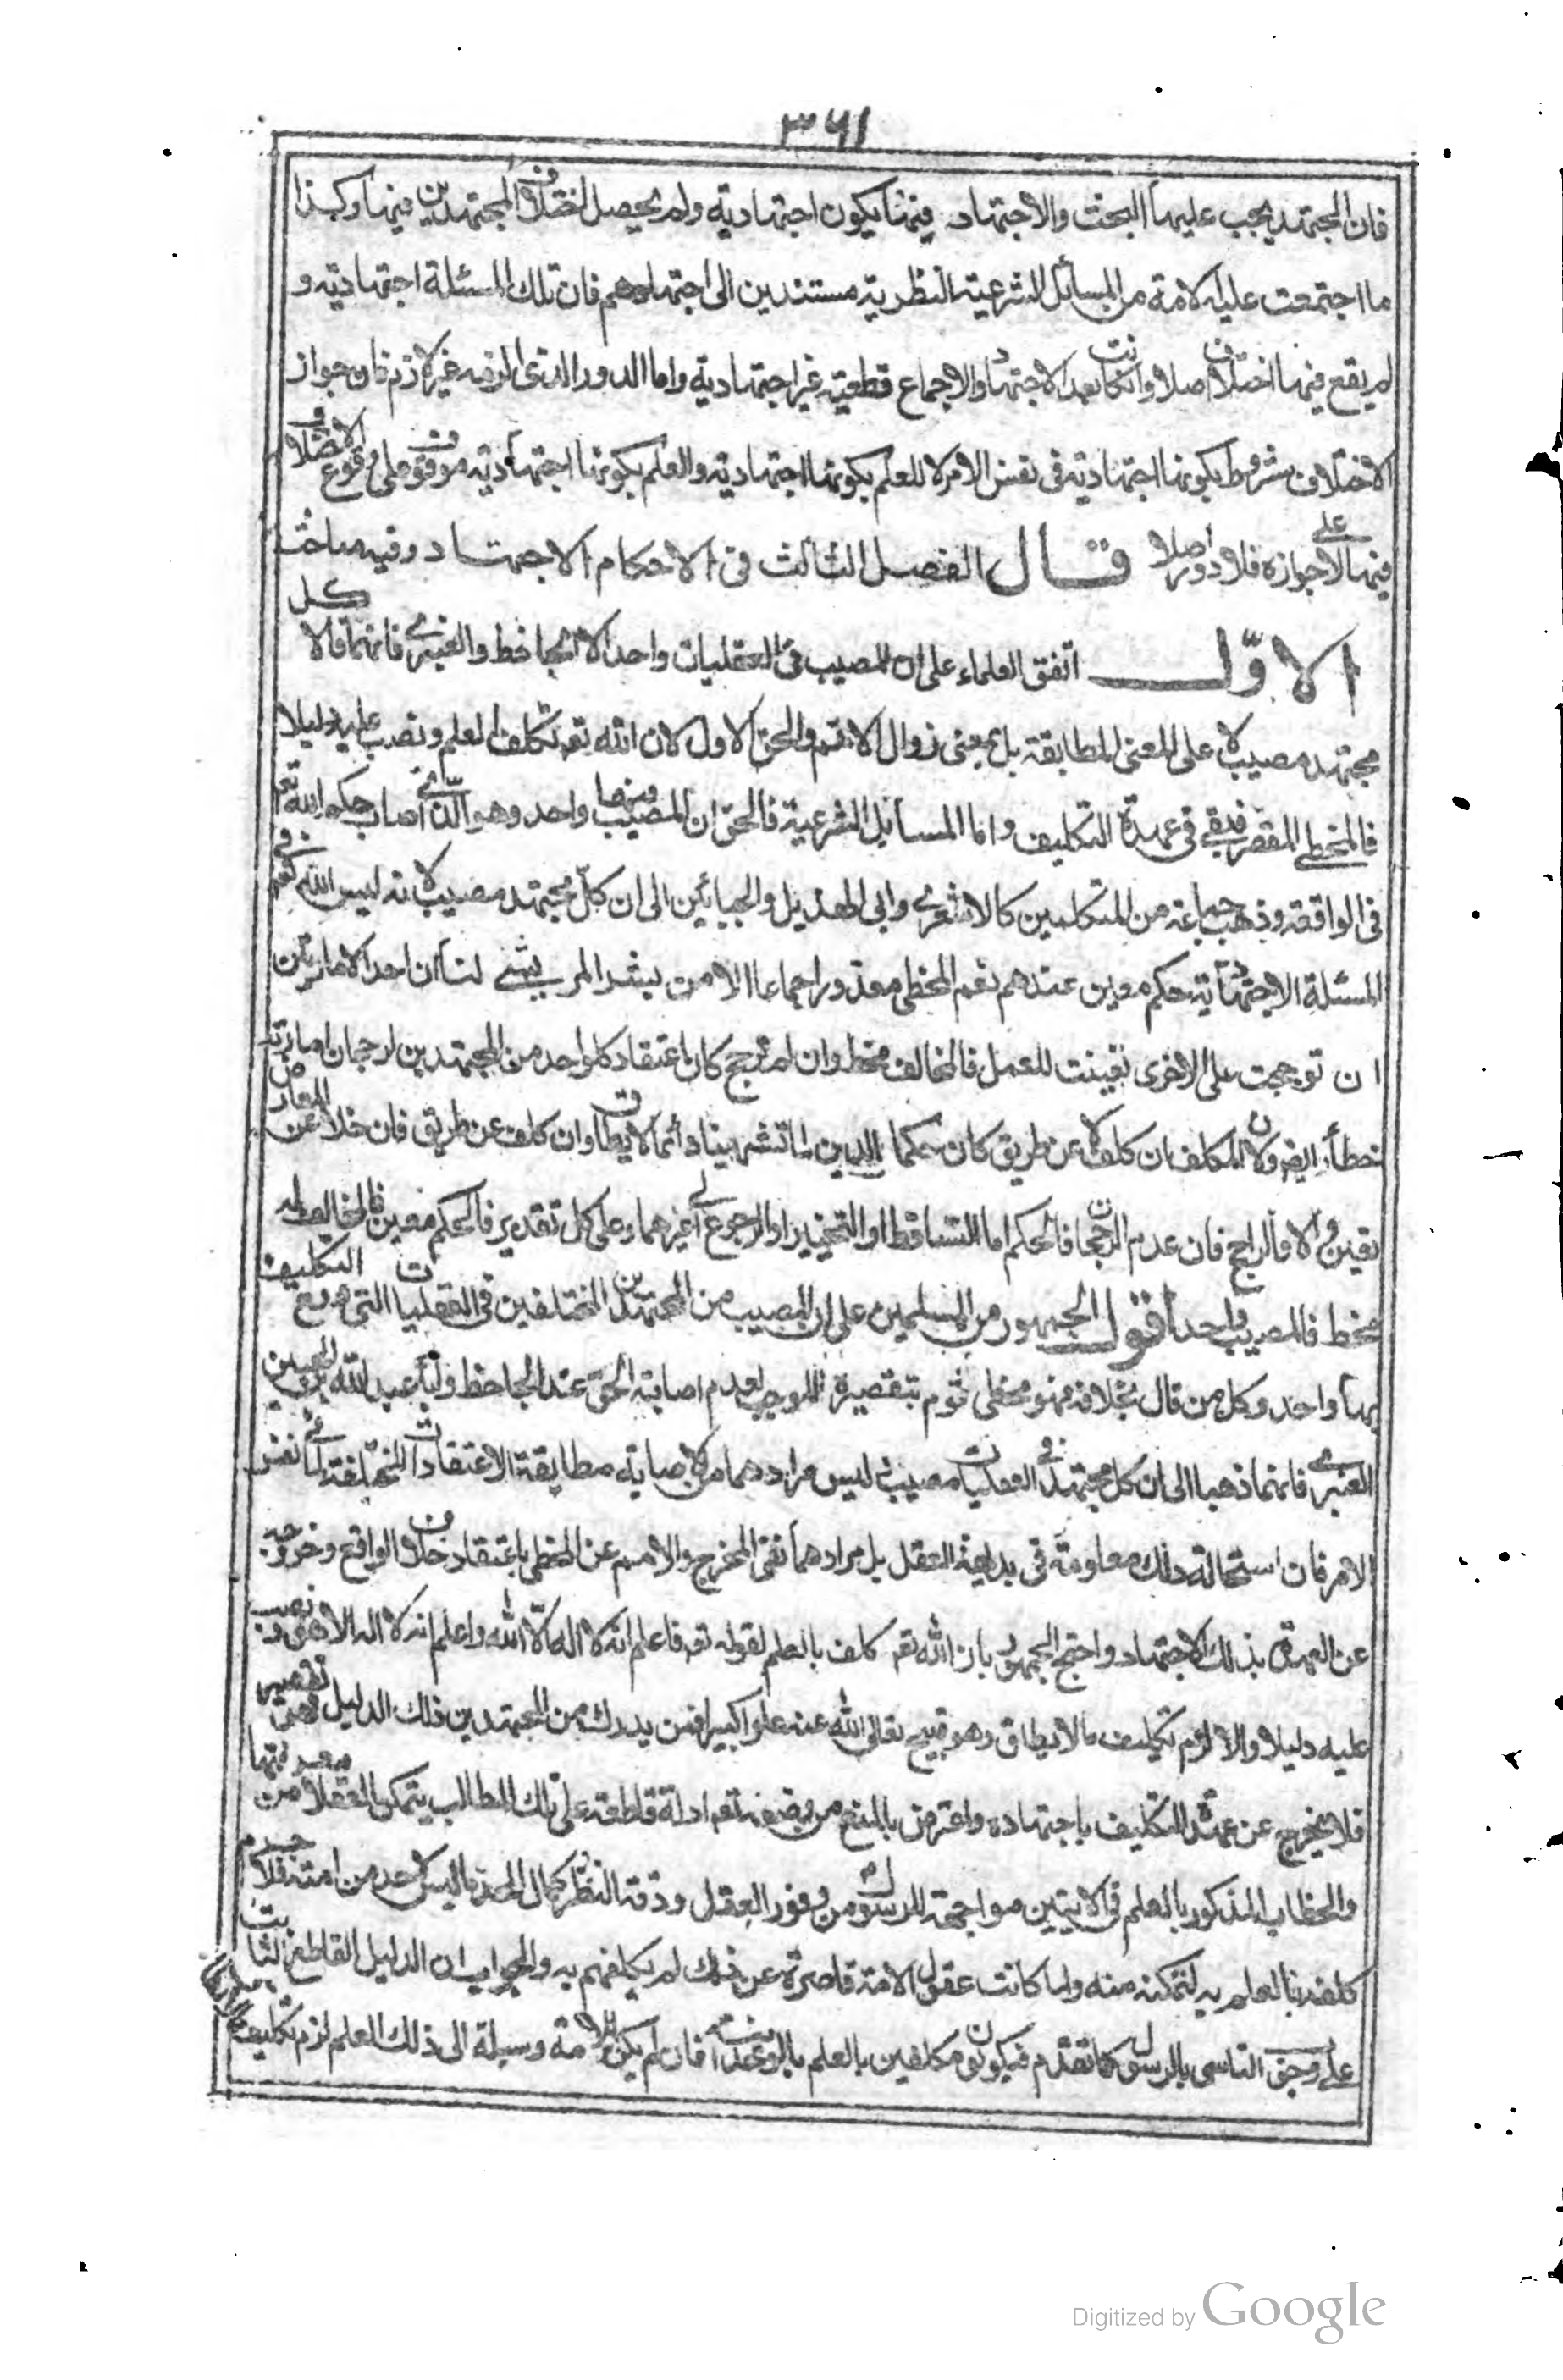 ٣٦١
فان المجتهد يجب عليهما البحث والاجتهاد فيها فيكون اجتهادية ولم يحصل اختلاف المجتهدين فيها وكذا
ما اجتمعت عليه الامة من المسائل الشرعية النظرية مستندين الى اجتهادهم فان تلك المسئلة اجتهادية و
لم يقع فيها اختلاف اصلا وان كانت بعد الاجتهاد والاجماع قطعية غير اجتهادية واما الدور الذى الزمه غير لازم فان جواز
الاختلاف مشروط بكونها اجتهادية فى نفس الامر لا للعلم بكونها اجتهادية والعلم بكونها اجتهادية موقوف على وقوع الاختلاف
فيها لا على جوازه فلا دور اصلا قال الفصل الثالث فى الاحكام الاجتهاد وفيه مباحث
الاوّل اتفق العلماء على ان المصيب فى العقليات واحد الا الجاحظ والعنبرى فانهما قالا كل
مجتهد مصيب لا على المعنى المطابقة بل بمعنى زوال الاثم والحق الاول لان الله تعم كلف العلم ونصب عليه دليلا
فالمخطى المقصر فبقى فى عهدة التكليف واما المسائل الشرعية فالحق ان المصيب منها واحد وهو الذى اصاب حكم الله تعم
فى الواقعة وذهب جماعة من المتكلمين كالاشعرى وابى الهذيل والجبائين الى ان كلّ مجتهد مصيب لانه ليس لله تعم فى
المسئلة الاجتهادية حكم معين عندهم نعم المخطى معذور اجماعا الا من بشر المريسى لنا ان احد الامارتين
ان ترجحت على الاخرى تعينت للعمل فالمخالف مخط وان لم ترجح كان اعتقاد كل واحد من المجتهدين لرجحان امارته
خطأ ايضا ولان المكلف ان كلف لا عن طريق كان حكما الدين اما تشهيا دائما لا يطاق وان كلف عن طريق فان خلا عن المعارض
تعين والا فالراجح فان عدم الرجحان فالحكم اما التساقط او التخيير او الرجوع الى غيرهما وعلى كل تقدير فالحكم معين فالمخالف له
مخط فالمصيب واحد اقول الجمهور من المسلمين على ان المصيب من المجتهدين المختلفين فى العقليات التى وقع التكليف
بها واحد وكل من قال بخلافه فهو مخطى ثوم بتقصيره الموجب لعدم اصابته الحق عند الجاحظ وابا عبد الله بن الحسين
العنبرى فانهما ذهبا الى ان كل مجتهد فى العقليات مصيب ليس مرادهما من الاصابة مطابقة الاعتقادات المختلفة لما فى نفس
الامر فان استحالة ذلك معلومة فى بداهة العقل بل مرادهما نفى الحرج والاثم عن المخطى باعتقاد خلاف الواقع وخروجه
عن العهدة بذلك الاجتهاد واحتج الجمهور بان الله تعم كلف بالعلم لقوله تعم فاعلم انه لا اله الّا الله واعلم انه لا اله الا هو ونصب
عليه دليلا والا لزم تكليف ما لا يطاق وهو قبيح تعالى الله عنه علوا كبيرا فمن يدرك من المجتهدين ذلك الدليل فهو تقصير
فلا يخرج عن عهدة التكليف باجتهاده واعترض بالمنع من وضعه تعم ادلة قاطعة على تلك المطالب يتمكن العقلا من معرفتها
والخطاب المذكور بالعلم فى الايتين مواجهة للرسول من وفور العقل ودقة النظر كمال الحدة ما ليس لاحد من امته فلا جرم
كلفه بالعلم به لتمكنه منه ولما كانت عقول الامة قاصرة عن ذلك لم يكلفهم به والجواب ان الدليل القاطع الثابت
على وجوب التاسى بالرسول كما تقدم فيكونون مكلفين بالعلم بالوحدانية فان لم يكن للامة وسيلة الى ذلك العلم لزم تكليف
Digitized by Google